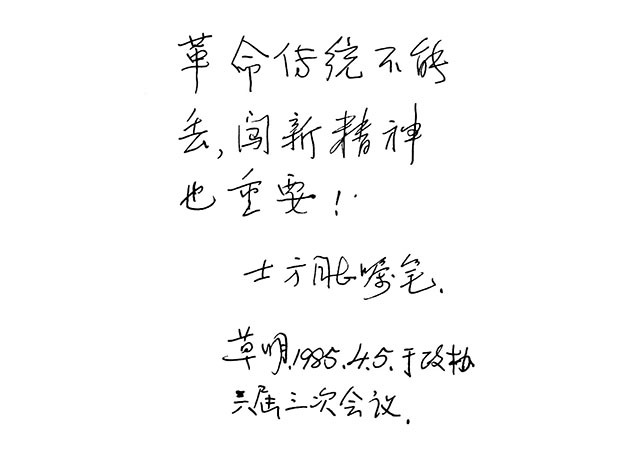 革命传统不能
丢,闯新精神
也重要!
士方嘱笔.
草明.1985.4.5.于政协
六届三次会议.